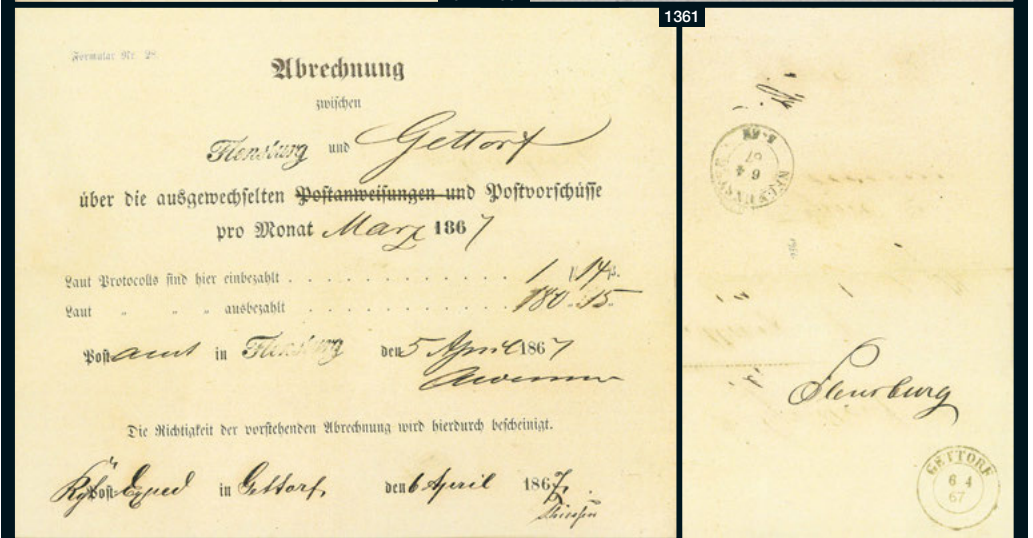 1361
Formular Nr. 28.
Abrechnung
zwischen
Flensburg und Gettorf
über die ausgewechselten Postanweisungen und Postvorschüsse
pro Monat März 1867
Laut Protocolls sind hier einbezahlt . . . . . . . . . . . . . 1 14 ß.
Laut " " " ausbezahlt . . . . . . . . . . . . . 180 " 15 "
Postamt in Flensburg den 5 April 1867
Die Richtigkeit der vorstehenden Abrechnung wird hierdurch bescheinigt.
Post-Exped in Gettorf, den 6 April 1867.
6 4
67
Flensburg
GETTORF
6 4
67